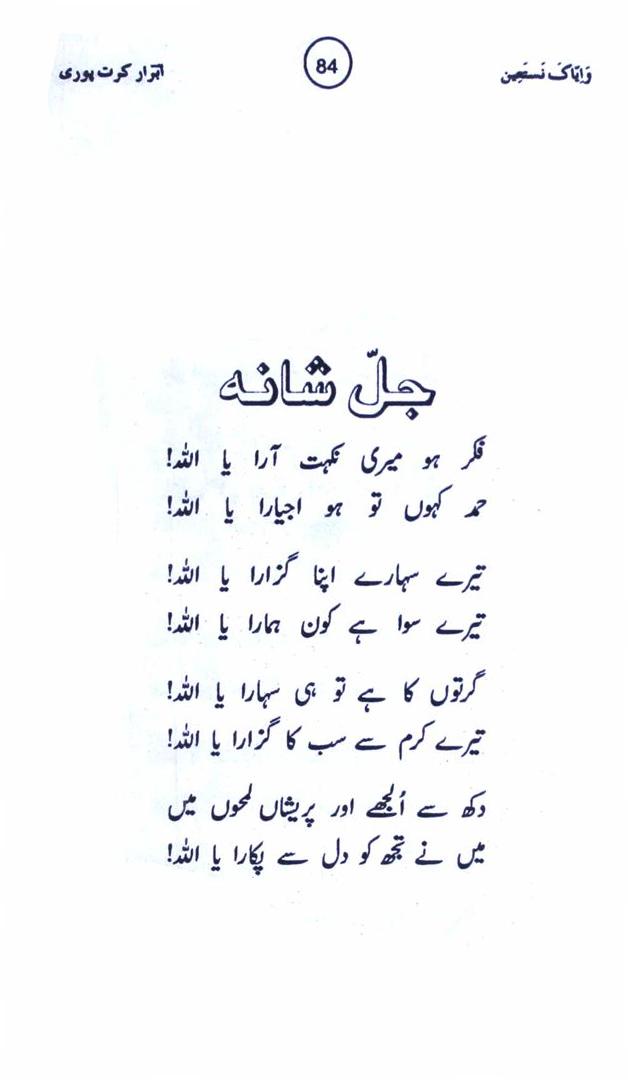 وَاِیَّاکَ نَستَعِین
84
ابرار کرت پوری
جلّ شانہ
فکر ہو میری نکہت آرا یا اللہ!
حمد کہوں تو ہو اجیارا یا اللہ!
تیرے سہارے اپنا گزارا یا اللہ!
تیرے سوا ہے کون ہمارا یا اللہ!
گرتوں کا ہے تو ہی سہارا یا اللہ!
تیرے کرم سے سب کا گزارا یا اللہ!
دکھ سے اُلجھے اور پریشاں لمحوں میں
میں نے تجھ کو دل سے پکارا یا اللہ!